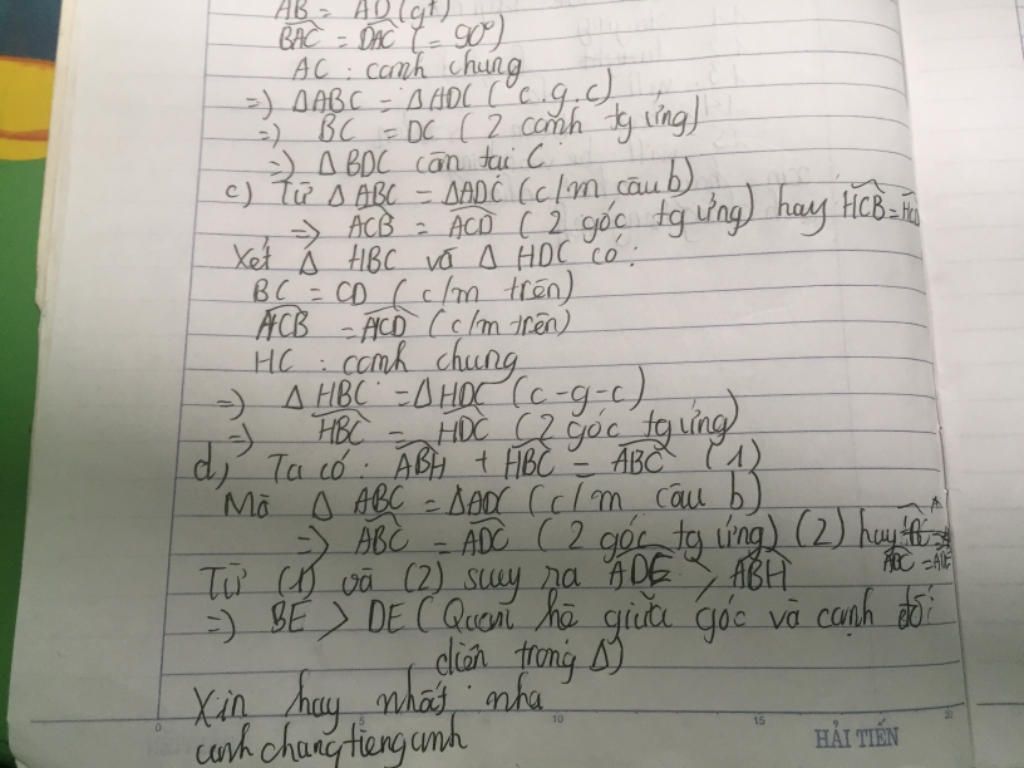 AB = AD (gt)
BAC = DAC (= 90°)
AC : cạnh chung
=) ΔABC = ΔADC (c.g.c)
=) BC = DC (2 cạnh tg ứng)
=) Δ BDC cân tại C
c) Từ Δ ABC = ΔADC (c/m câu b)
=> ACB = ACD (2 góc tg ứng) hay HCB = HCD
Xét Δ HBC và Δ HDC có:
BC = CD (c/m trên)
ACB = ACD (c/m trên)
HC : cạnh chung
=) Δ HBC = ΔHDC (c-g-c)
=) HBC = HDC (2 góc tg ứng)
d) Ta có: ABH + HBC = ABC (1)
Mà Δ ABC = ΔADC (c/m câu b)
=> ABC = ADC (2 góc tg ứng) (2) hay
ABC =
Từ (1) và (2) suy ra ADE > ABH
=) BE > DE (Quan hệ giữa góc và cạnh đối
diện trong Δ)
Xin hay nhất nha
anhchangtienganh
0 5 10 15 20
HẢI TIẾN